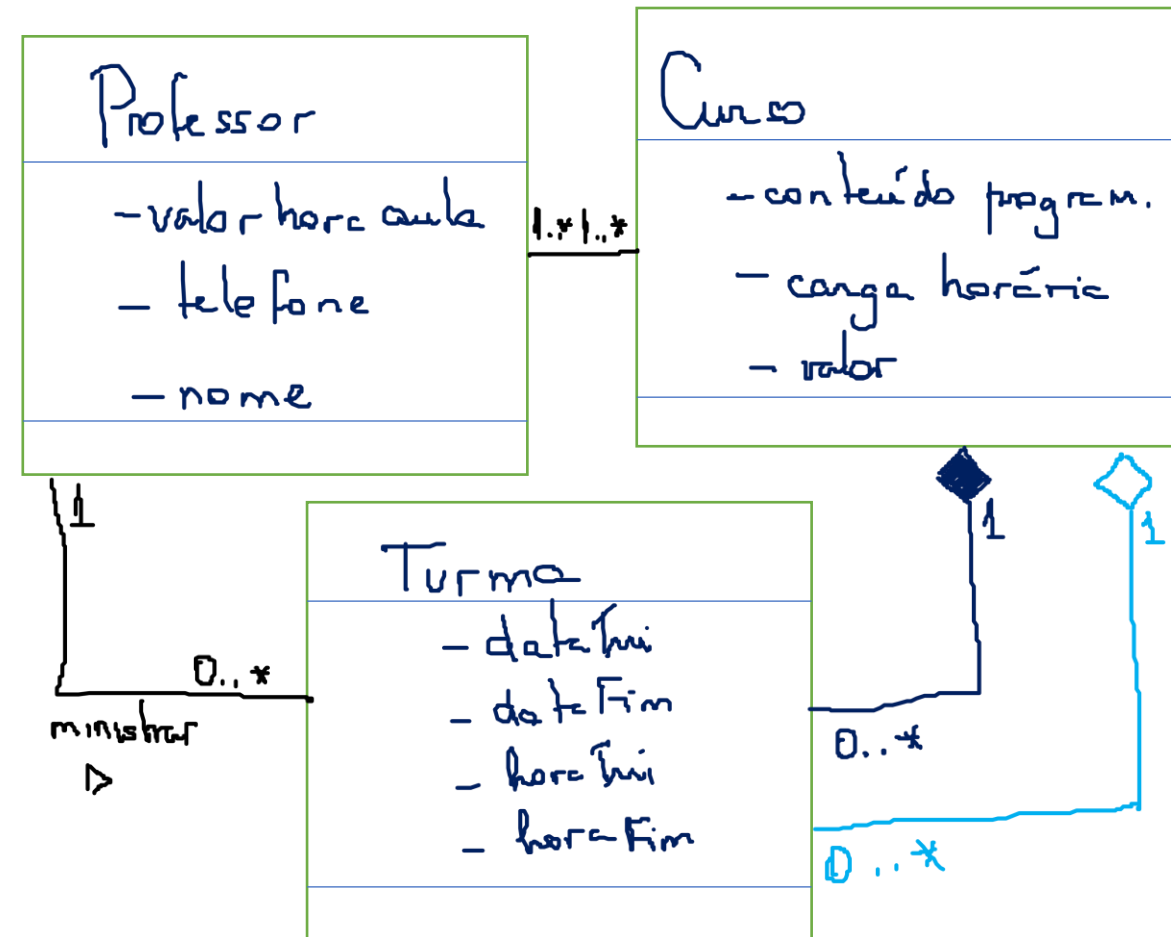 Professor
- valor hora aula
- telefone
- nome
1..* 1..*
Curso
- conteúdo program.
- carga horária
- valor
1
0..*
ministrar
Turma
- dataIni
- dataFim
- horaIni
- horaFim
1
0..*
1
0..*